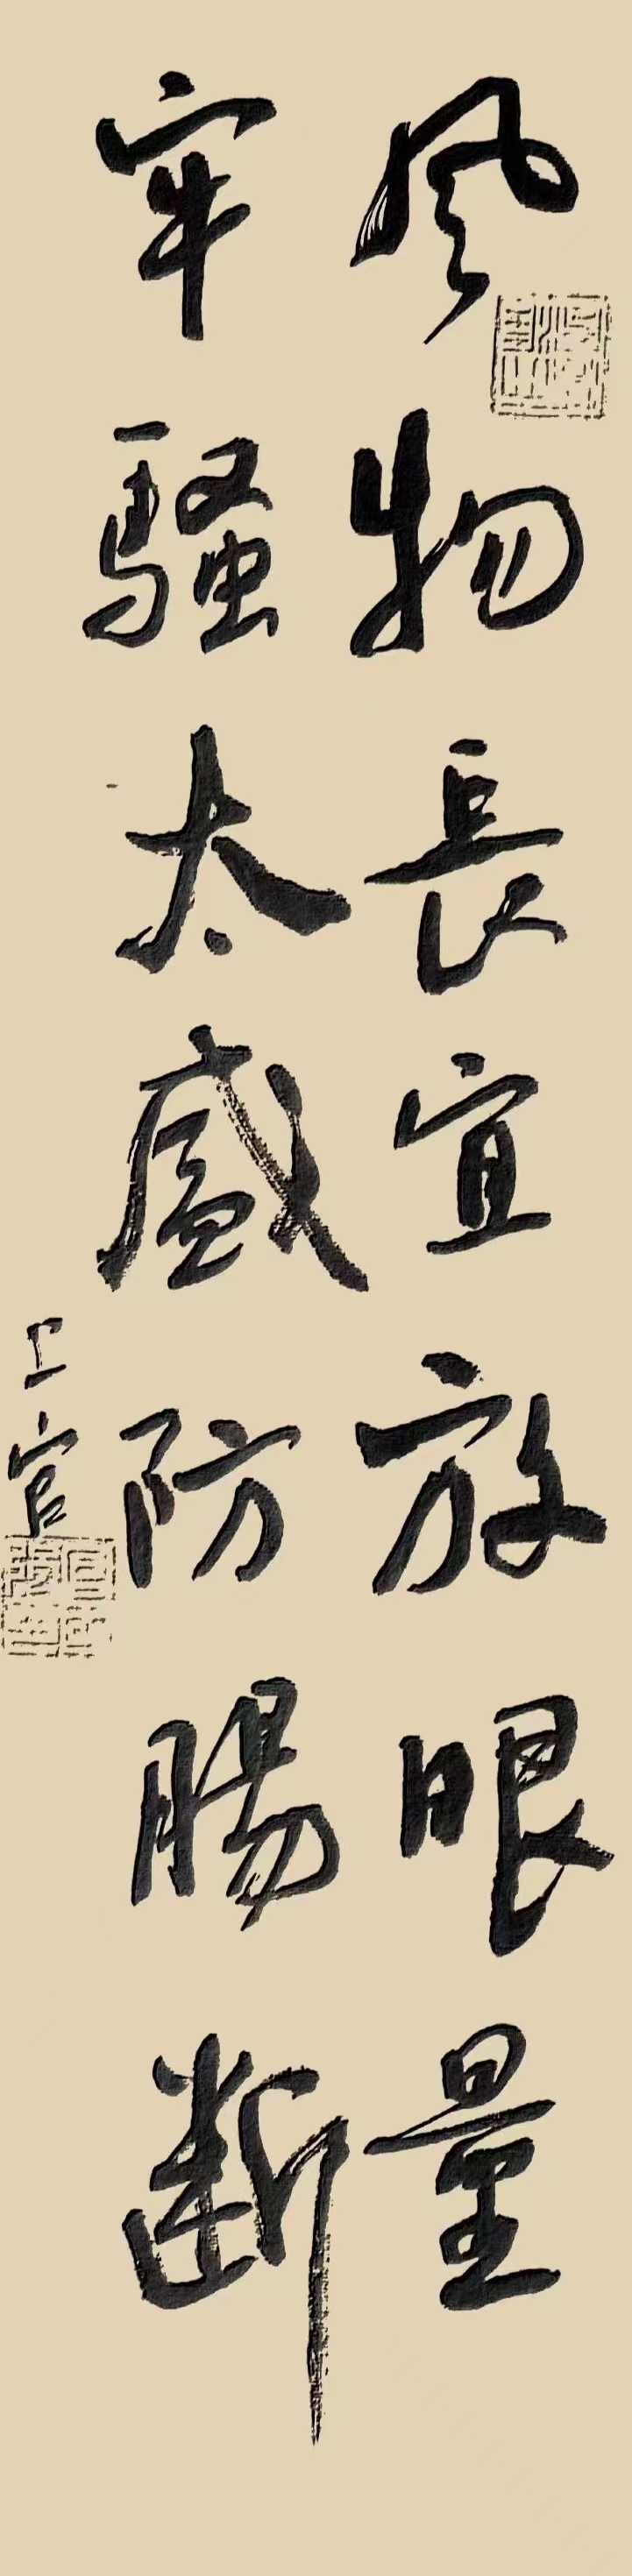 风物長宜放眼量
牢騷太盛防腸斷
上官